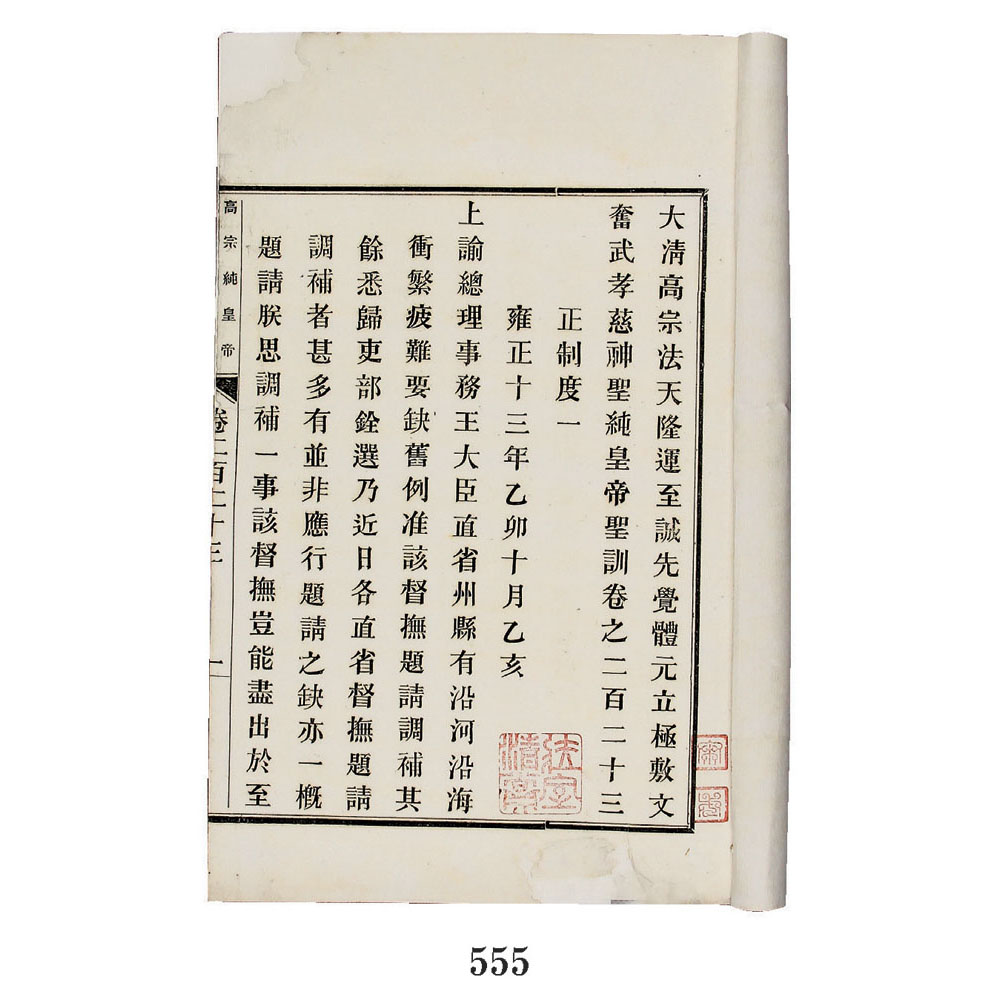 大清高宗法天隆運至誠先覺體元立極敷文
奮武孝慈神聖純皇帝聖訓卷之二百二十三
正制度一
雍正十三年乙卯十月乙亥
上諭總理事務王大臣直省州縣有沿河沿海
衝繁疲難要缺舊例准該督撫題請調補其
餘悉歸吏部銓選乃近日各直省督撫題請
調補者甚多有並非應行題請之缺亦一概
題請朕思調補一事該督撫豈能盡出於至
高宗純皇帝
卷二百二十三
一
555